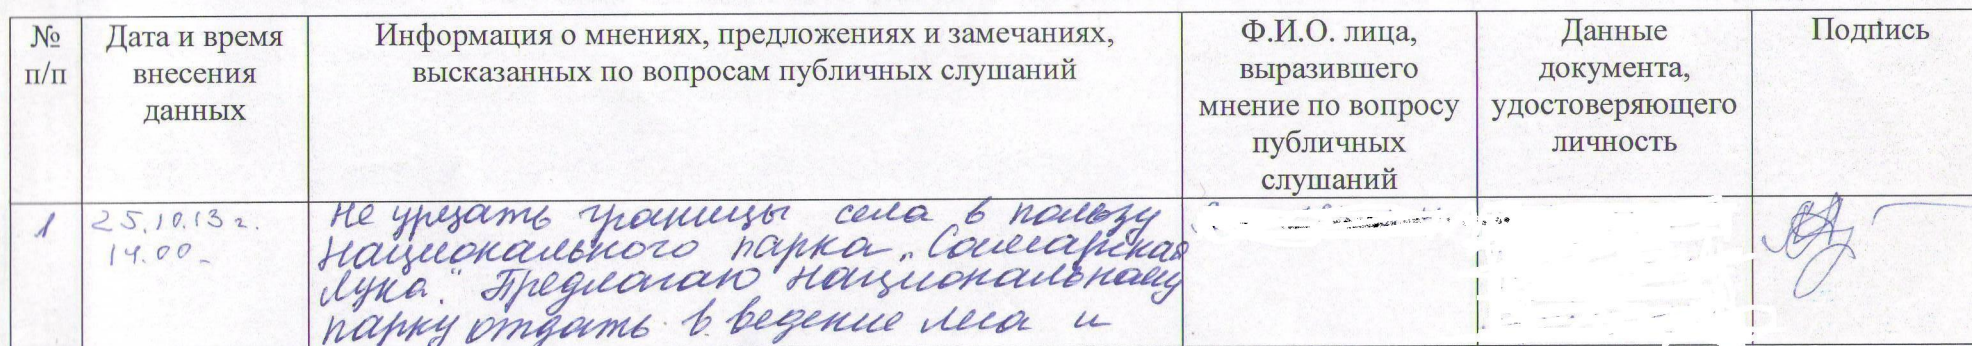 № п/п
Дата и время внесения данных
Информация о мнениях, предложениях и замечаниях,
высказанных по вопросам публичных слушаний
Ф.И.О. лица,
выразившего
мнение по вопросу
публичных
слушаний
Данные
документа,
удостоверяющего
личность
Подпись
1
25.10.13 г.
14.00
Не урезать границы села в пользу
Национального парка „Самарская
Лука". Предлагаю Национальному
парку отдать в ведение леса и